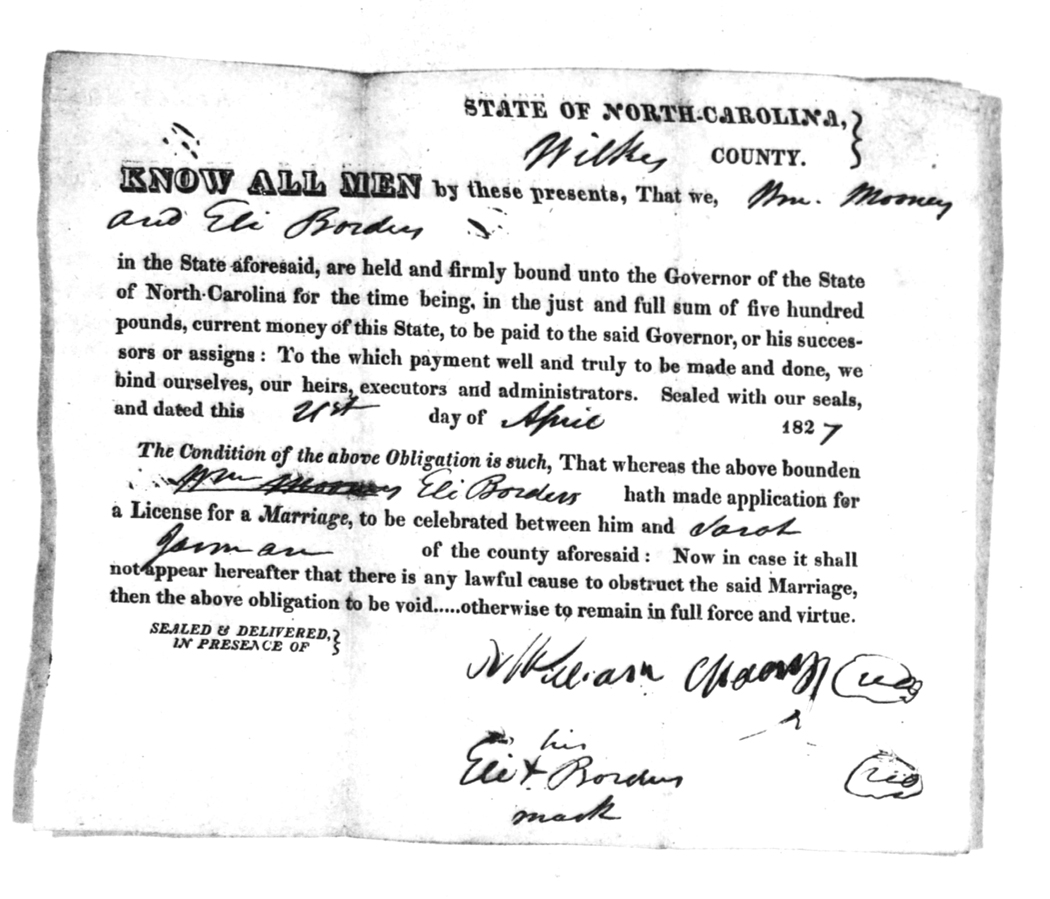 STATE OF NORTH-CAROLINA,
Wilkes COUNTY.
KNOW ALL MEN by these presents, That we, Wm. Mooney
and Eli Borders
in the State aforesaid, are held and firmly bound unto the Governor of the State
of North-Carolina for the time being, in the just and full sum of five hundred
pounds, current money of this State, to be paid to the said Governor, or his succes-
sors or assigns: To the which payment well and truly to be made and done, we
bind ourselves, our heirs, executors and administrators. Sealed with our seals,
and dated this 21st day of April 1827
The Condition of the above Obligation is such, That whereas the above bounden
Wm Mooney Eli Borders hath made application for
a License for a Marriage, to be celebrated between him and Sarah
Jarman of the county aforesaid: Now in case it shall
not appear hereafter that there is any lawful cause to obstruct the said Marriage,
then the above obligation to be void.....otherwise to remain in full force and virtue.
SEALED & DELIVERED,
IN PRESENCE OF
William Mooney
his
Eli X Borders
mark